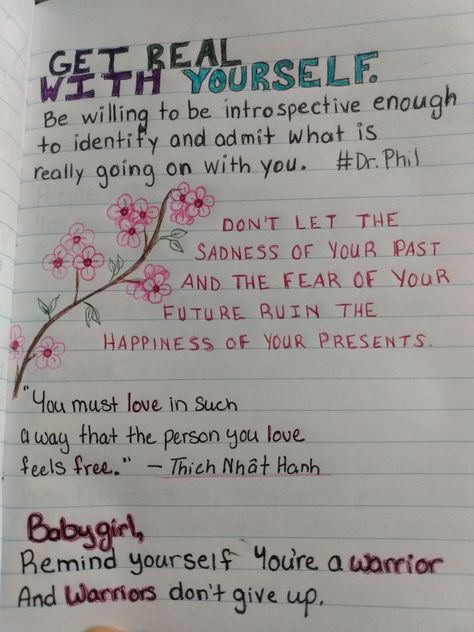 GET REAL
WITH YOURSELF.
Be willing to be introspective enough
to identify and admit what is
really going on with you. #Dr. Phil
DON'T LET THE
SADNESS OF YOUR PAST
AND THE FEAR OF YOUR
FUTURE RUIN THE
HAPPINESS OF YOUR PRESENTS.
"You must love in such
a way that the person you love
feels free." – Thich Nhât Hanh
Babygirl,
Remind yourself You're a warrior
And Warriors don't give up.